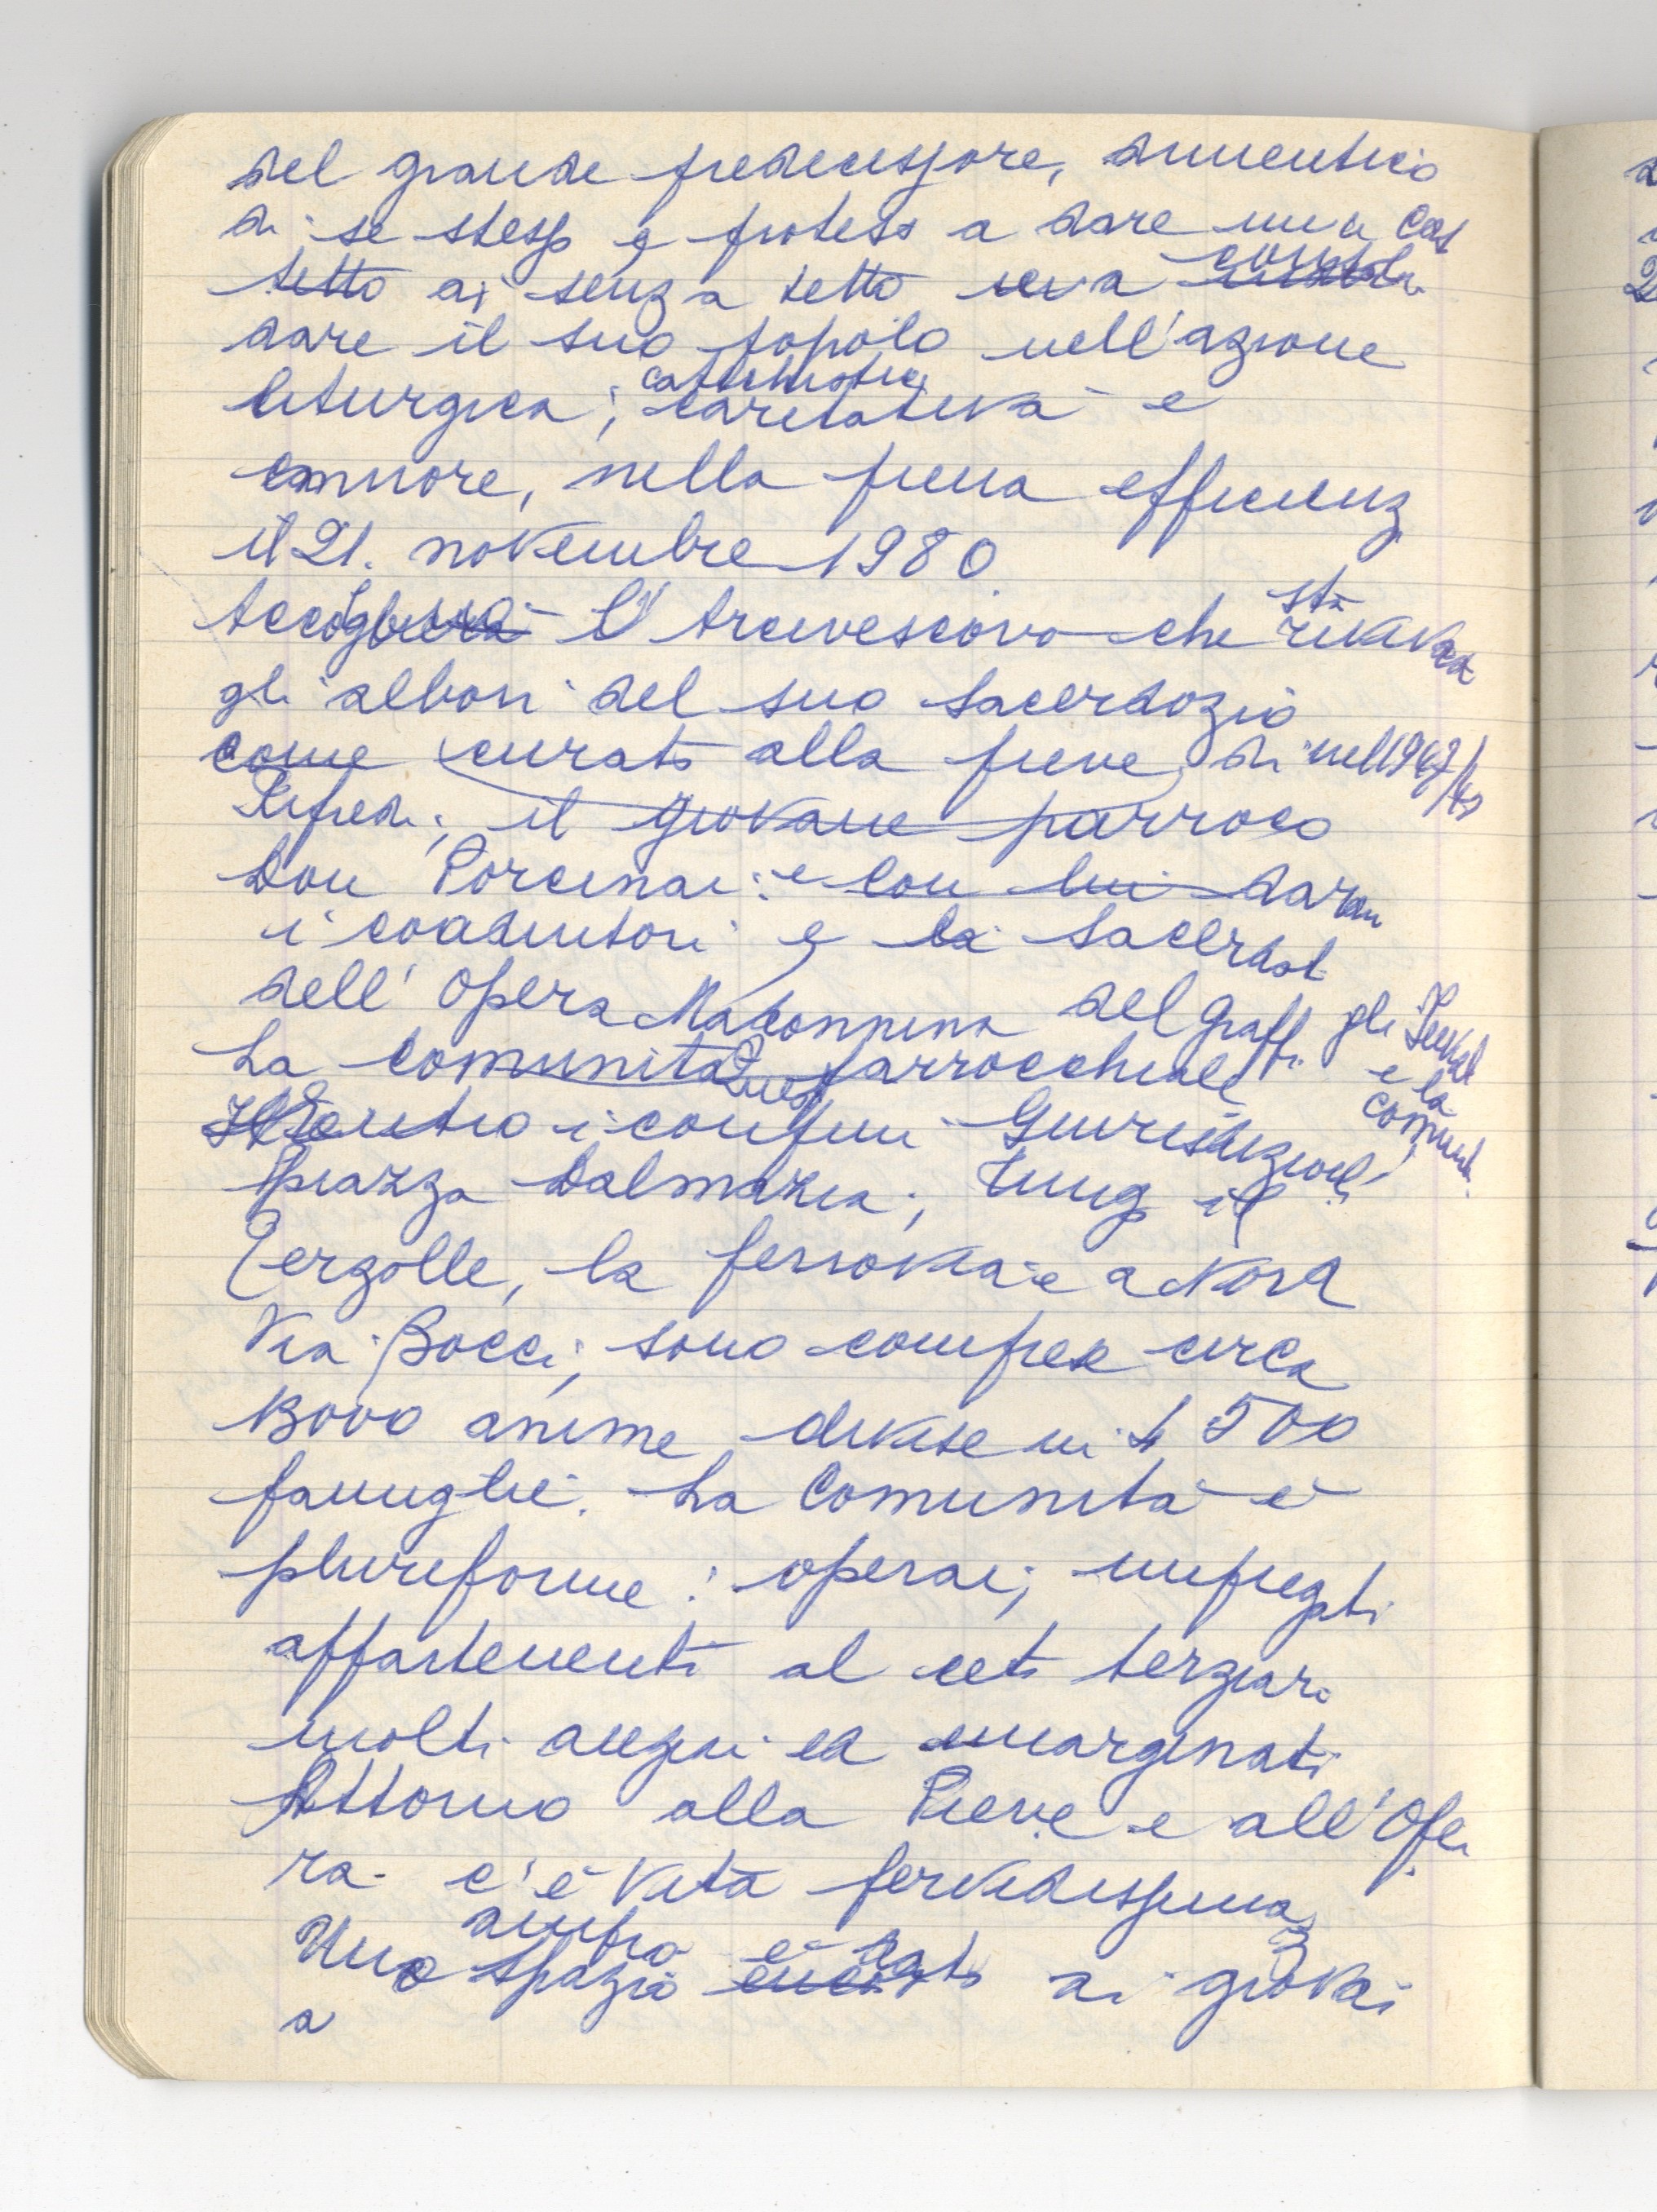 del grande predecessore, dimentico
di se stesso e proteso a dare una casa
tetto ai senza tetto
dare il suo popolo nell'azione
liturgica, catechistica caritativa e
muore, nella piena efficienz
il 21. novembre 1980
Accoglierà l'Arcivescovo che sta
gli albori del suo sacerdozio
come curato alla pieve di nell 1947/48
Rifredi; il giovane parroco
Don Porcinai: e con lui saran
i coadiutori e i sacerdot
dell'Opera Madonnina del Grappa gli
e la comunità
La comunità parrocchiale
Entro i confini Giurisdizionali
Piazza Dalmazia; lung il
Terzolle, la ferrovia e a Nord
Via Bocci; sono comprese circa
anime divise in 4500
famiglie. La Comunità è
pluriforme: operai; impiegati
appartenenti al ceto terziario
molti anziani ed emarginati
Attorno alla Pieve e all'Ope
ra c'è vita fervidissima
Uno spazio ampio è dato ai giovani
a